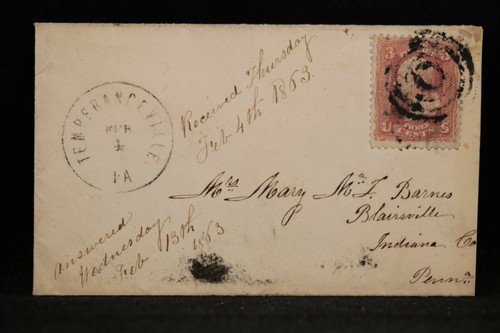 TEMPERANCEVILLE
FEB
PA
Received Thursday
Feb 4th 1863.
3 3
THREE
CENTS
Mrs. Mary McF. Barnes
Blairsville
Indiana Co
Penna
Answered
Wednesday
Feb 13th
1863